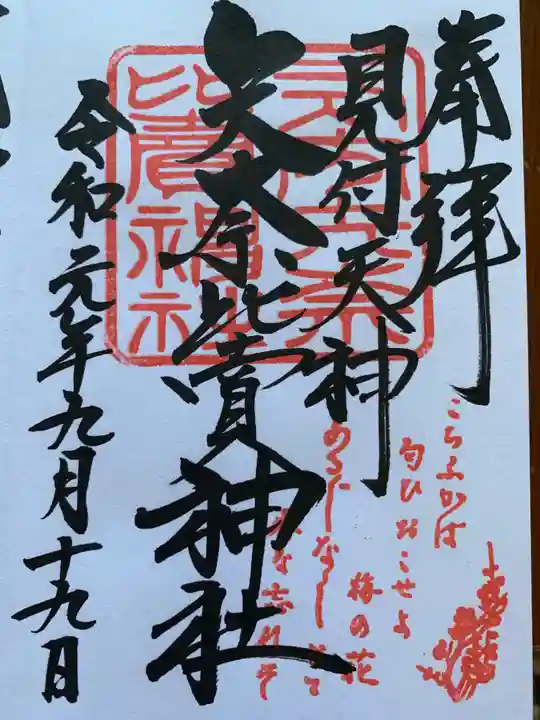 奉拝
見付天神
矢奈比賣神社
令和元年九月十九日
こちふかば
匂ひおこせよ
梅の花
あるじなしとて
な忘れそ